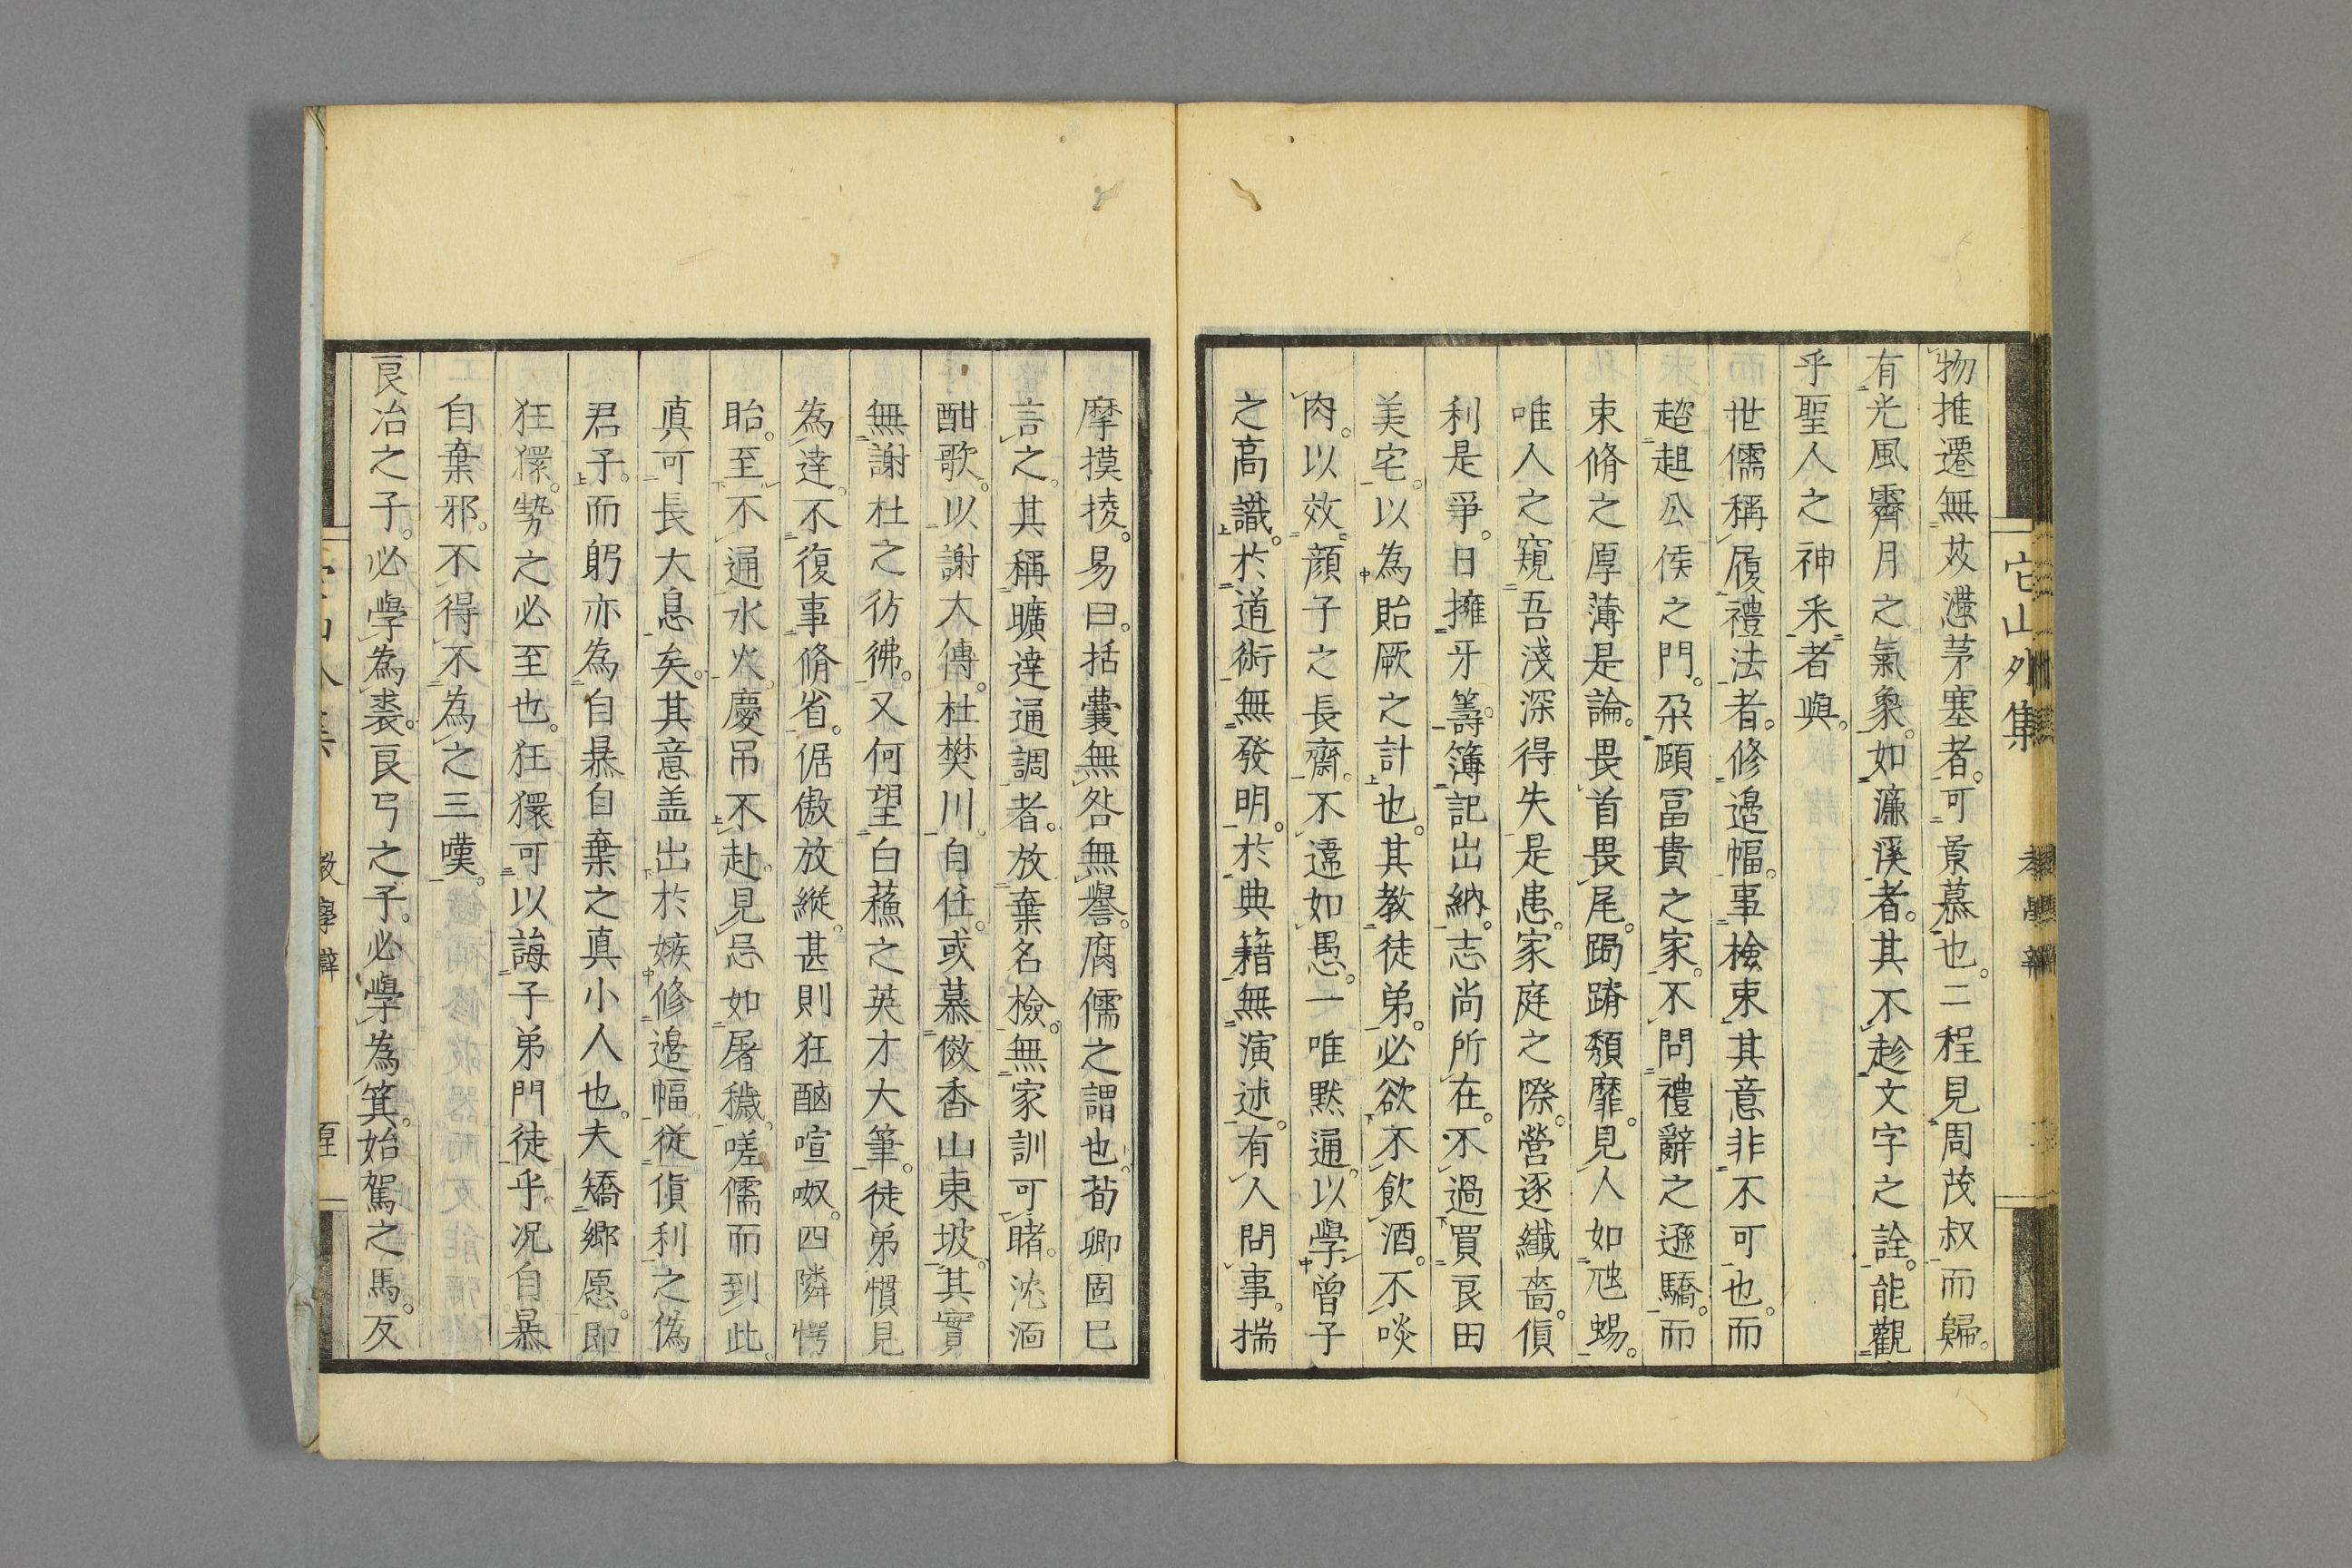 它山外集
物推遷無芥懘茅塞者。可景慕也。二程見周茂叔而歸。
有光風霽月之氣象。如濂溪者。其不趁文字之詮。能觀
乎聖人之神釆者與。
世儒稱履禮法者。修邉幅。事檢束。其意非不可也。而
趦趄公侯之門。朶頤冨貴之家。不問禮辭之遜驕。而
束脩之厚薄是論。畏首畏尾。跼蹐頽靡。見人如虺蜴。
唯人之窺吾淺深得失是患。家庭之際。營逐纖嗇。傎
利是爭。日擁牙籌。簿記出納。志尚所在。不過買良田
美宅。以為貽厥之計也。其教徒弟。必欲不飲酒。不啖
肉。以效顔子之長齋。不遑如愚。一唯黙通。以學曾子
之高識。於道術無發明。於典籍無演述。有人問事。揣
摩摸稜。易曰。括囊無咎無譽。腐儒之謂也。荀卿固已
言之。其稱曠達通調者。放棄名檢。無家訓可睹。沈湎
酣歌。以謝太傅。杜樊川。自任。或慕倣香山東坡。其實
無謝杜之彷彿。又何望白蘓之英才大筆。徒弟慣見
為達。不復事脩省。倨傲放縱。甚則狂酗喧呶。四隣愕
眙。至不通水火。慶吊不赴。見忌如屠穢。嗟儒而到此。
真可長大息矣。其意盖出於嫉修邉幅従傎利之偽
君子。而躬亦為自暴自棄之真小人也。夫矯郷愿。即
狂獧。勢之必至也。狂獧可以誨子弟門徒乎。况自暴
自棄邪。不得不為之三嘆。
良冶之子。必學為裘。良弓之子。必學為箕。始駕之馬。反
教學辯